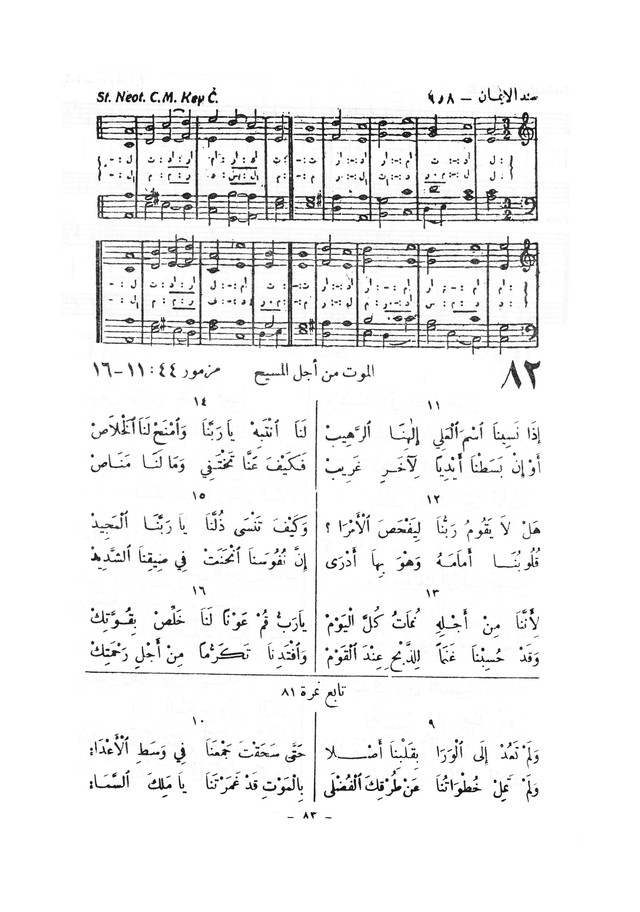 St. Neot. C.M. Key C.
سند الإيمان – ٨ر٩
٨٢
الموت من أجل المسيح
مزمور ٤٤ : ١١–١٦
١١
إِذَا نَسِينَا ٱسْمَ ٱلْعَلِي إِلٰهِنَا الرَّهِيبْ
أَوْ إِنْ بَسَطْنَا أَيْدِيًا لِآخَرٍ غَرِيبْ
١٢
هَلْ لَا يَقُومُ رَبُّنَا لِيَفْحَصَ ٱلْأَمْرَا ؟
قُلُوبُنَا أَمَامَهُ وَهْوَ بِهَا أَدْرَى
١٣
لِأَنَّنَا مِنْ أَجْلِهِ نُمَاتُ كُلَّ الْيَوْمْ
وَقَدْ حُسِبْنَا غَنَمًا لِلذَّبْحِ عِنْدَ ٱلْقَوْمْ
١٤
لَنَا ٱنْتَبِهْ يَا رَبَّنَا وَٱمْنَحْ لَنَا ٱلْخَلَاصْ
فَكَيْفَ عَنَّا تَخْتَفِي وَمَا لَنَا مَنَاصْ
١٥
وَكَيْفَ تَنْسَى ذُلَّنَا يَا رَبَّنَا الْمَجِيدْ
إِنَّ نُفُوسَنَا ٱنْحَنَتْ فِي ضِيقِنَا الشَّدِيدْ
١٦
يَارَبُّ قُمْ عَوْنًا لَنَا خَلِّصْ بِقُوَّتِكْ
وَٱفْتَدِنَا تَكَرُّمًا مِنْ أَجْلِ رَحْمَتِكْ
تابع نمرة ٨١
٩
وَلَمْ نَعُدْ إِلَى ٱلْوَرَا بِقَلْبِنَا أَصْـلَا
وَلَمْ تَمِلْ خُطْوَاتُنَا عَنْ طُرْقِكَ ٱلْفُضْلَى
١٠
حَتَّى سَحَقْتَ جَمْعَنَا فِي وَسَطِ ٱلْأَعْدَاءْ
بِالْمَوْتِ قَدْ غَمَرْتَنَا يَا مَلِكَ السَّمَاءْ
– ٨٣ –